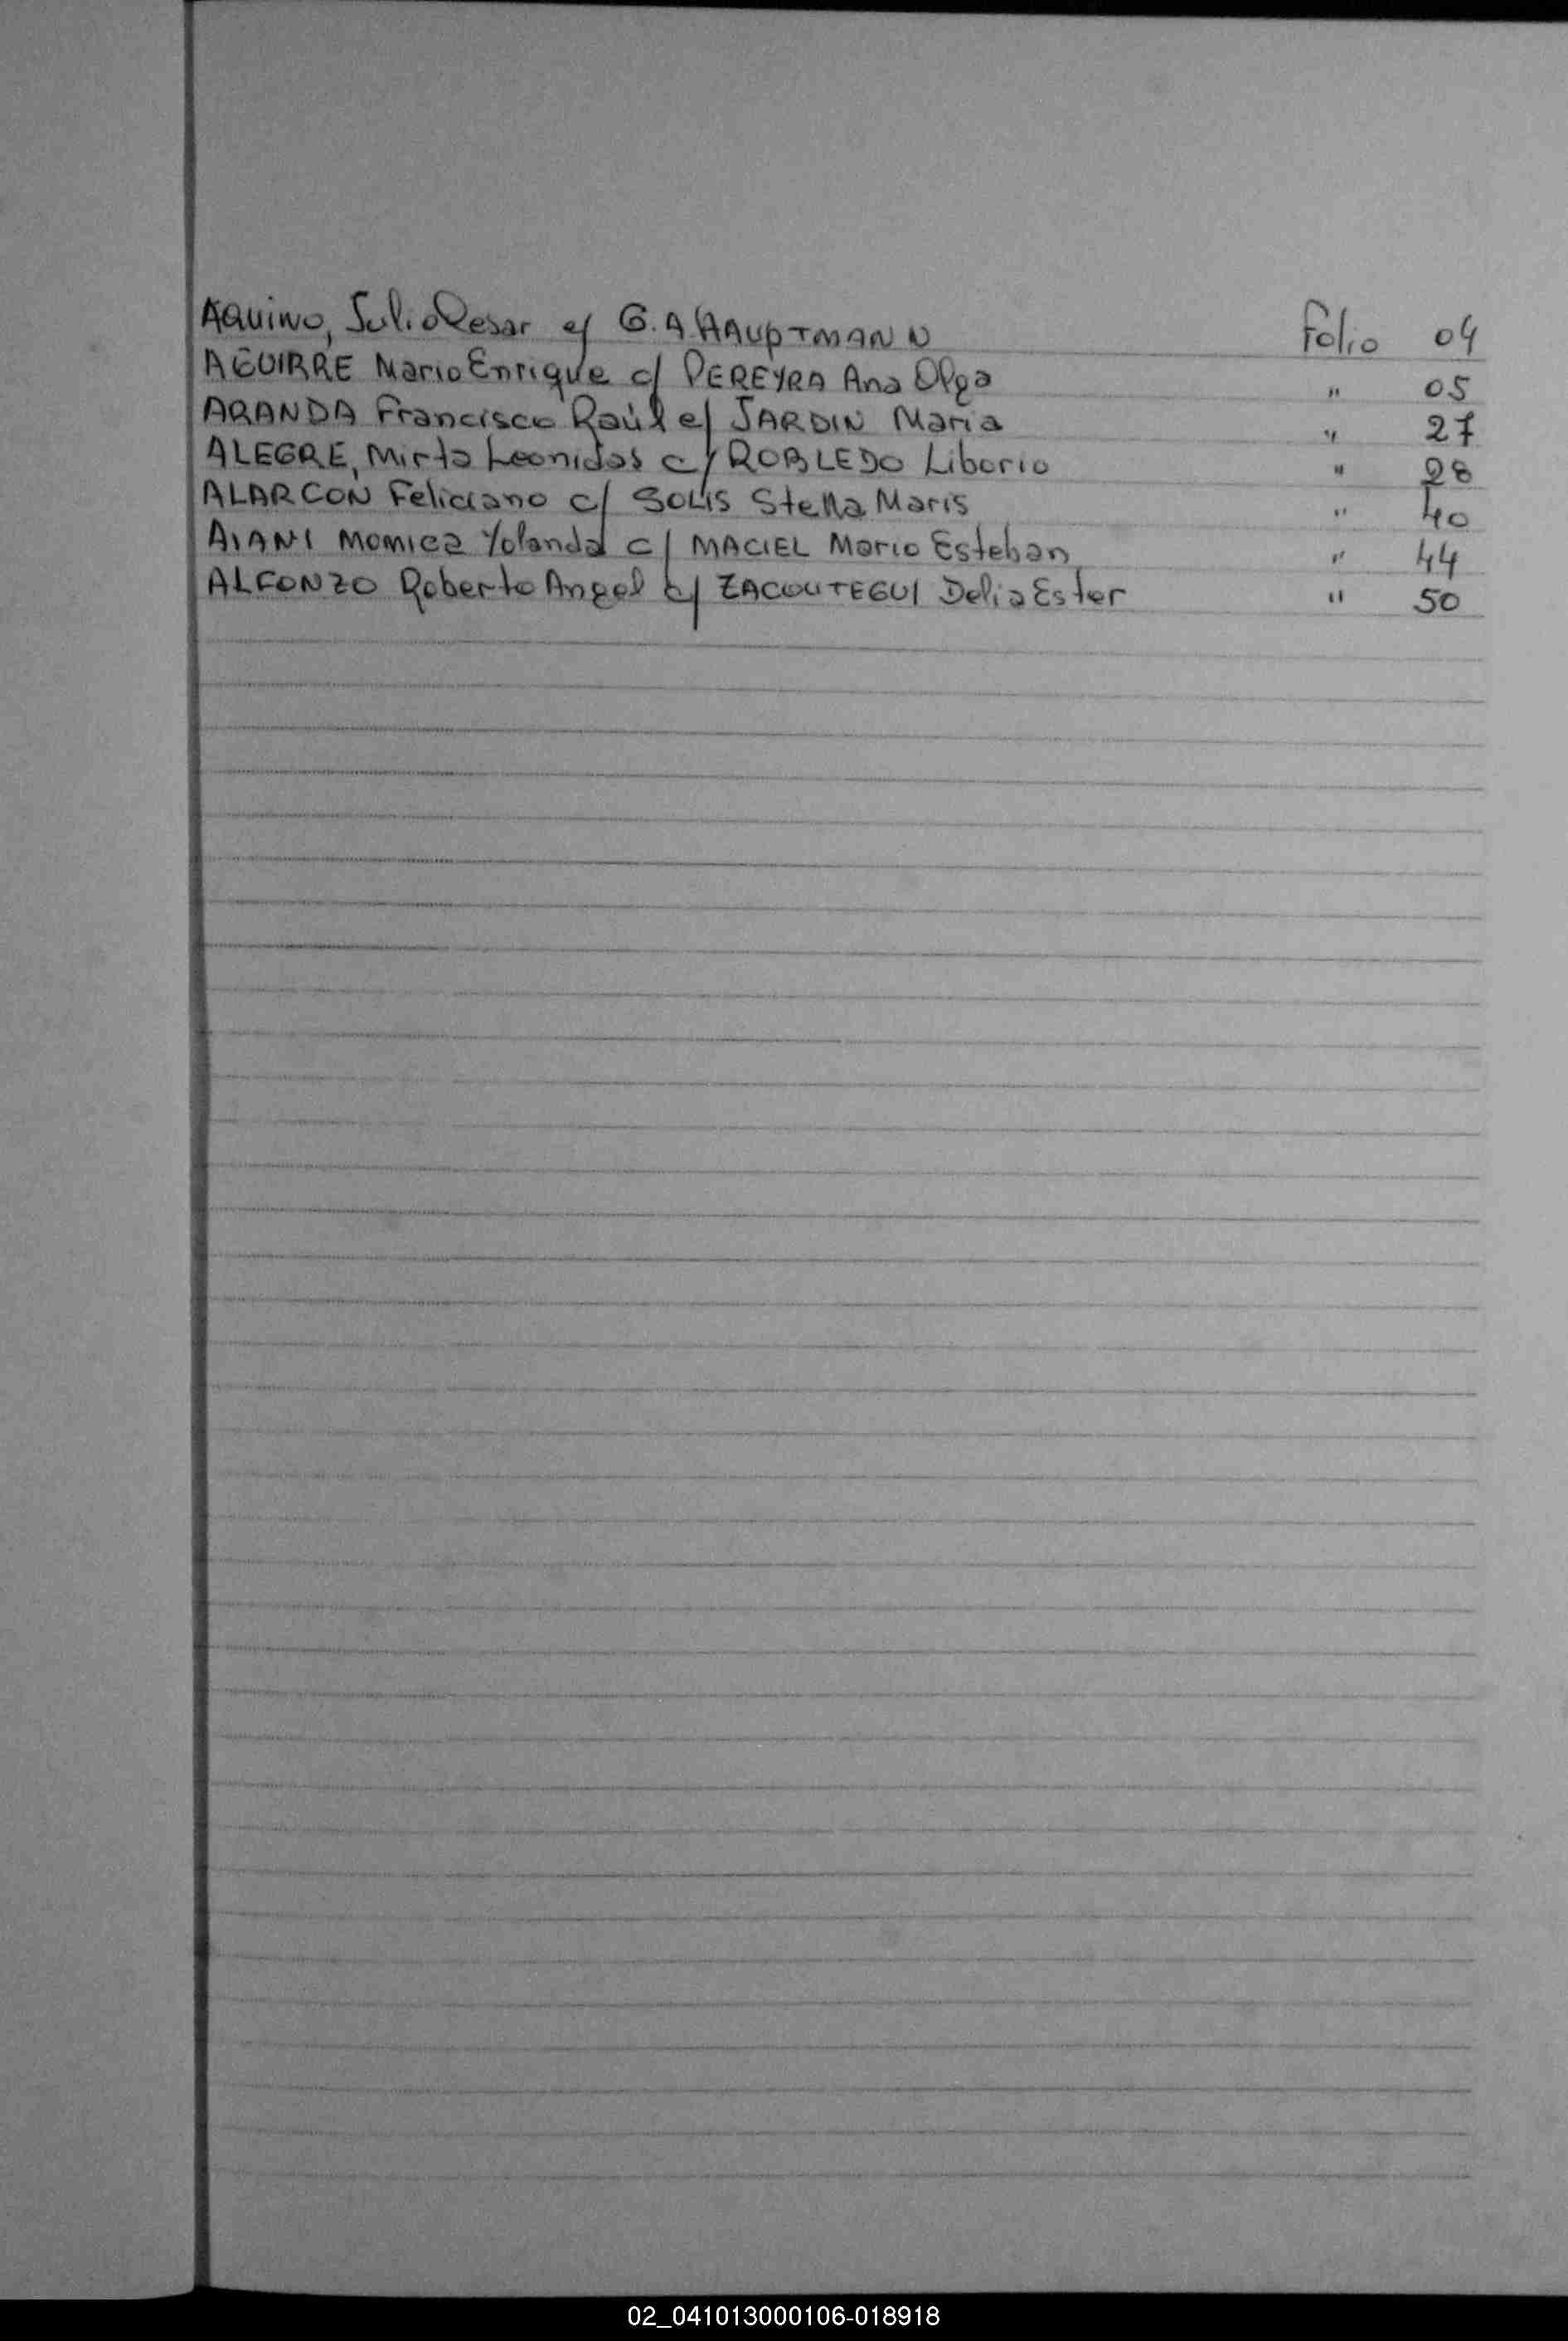 AQUINO, Julio Cesar c/ G.A. HAUPTMANN Folio 04
AGUIRRE Mario Enrique c/ PEREYRA Ana Olga " 05
ARANDA Francisco Raúl c/ JARDIN Maria " 27
ALEGRE, Mirta Leonidas c/ ROBLEDO Liborio " 28
ALARCON Feliciano c/ SOLIS Stella Maris " 40
AIANI Monica Yolanda c/ MACIEL Mario Esteban " 44
ALFONZO Roberto Angel c/ ZACOUTEGUI Delia Ester " 50
02_041013000106-018918